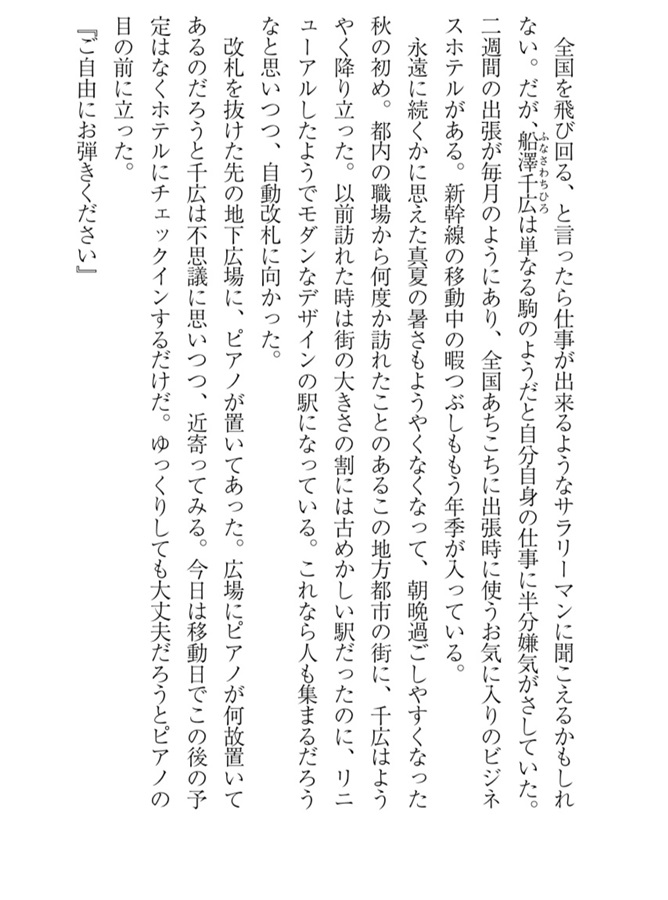 全国を飛び回る、と言ったら仕事が出来るようなサラリーマンに聞こえるかもしれ
ない。だが、船澤千広は単なる駒のようだと自分自身の仕事に半分嫌気がさしていた。
ふなさわちひろ
二週間の出張が毎月のようにあり、全国あちこちに出張時に使うお気に入りのビジネ
スホテルがある。新幹線の移動中の暇つぶしももう年季が入っている。
永遠に続くかに思えた真夏の暑さもようやくなくなって、朝晩過ごしやすくなった
秋の初め。都内の職場から何度か訪れたことのあるこの地方都市の街に、千広はよう
やく降り立った。以前訪れた時は街の大きさの割には古めかしい駅だったのに、リニ
ューアルしたようでモダンなデザインの駅になっている。これなら人も集まるだろう
なと思いつつ、自動改札に向かった。
改札を抜けた先の地下広場に、ピアノが置いてあった。広場にピアノが何故置いて
あるのだろうと千広は不思議に思いつつ、近寄ってみる。今日は移動日でこの後の予
定はなくホテルにチェックインするだけだ。ゆっくりしても大丈夫だろうとピアノの
目の前に立った。
『ご自由にお弾きください』